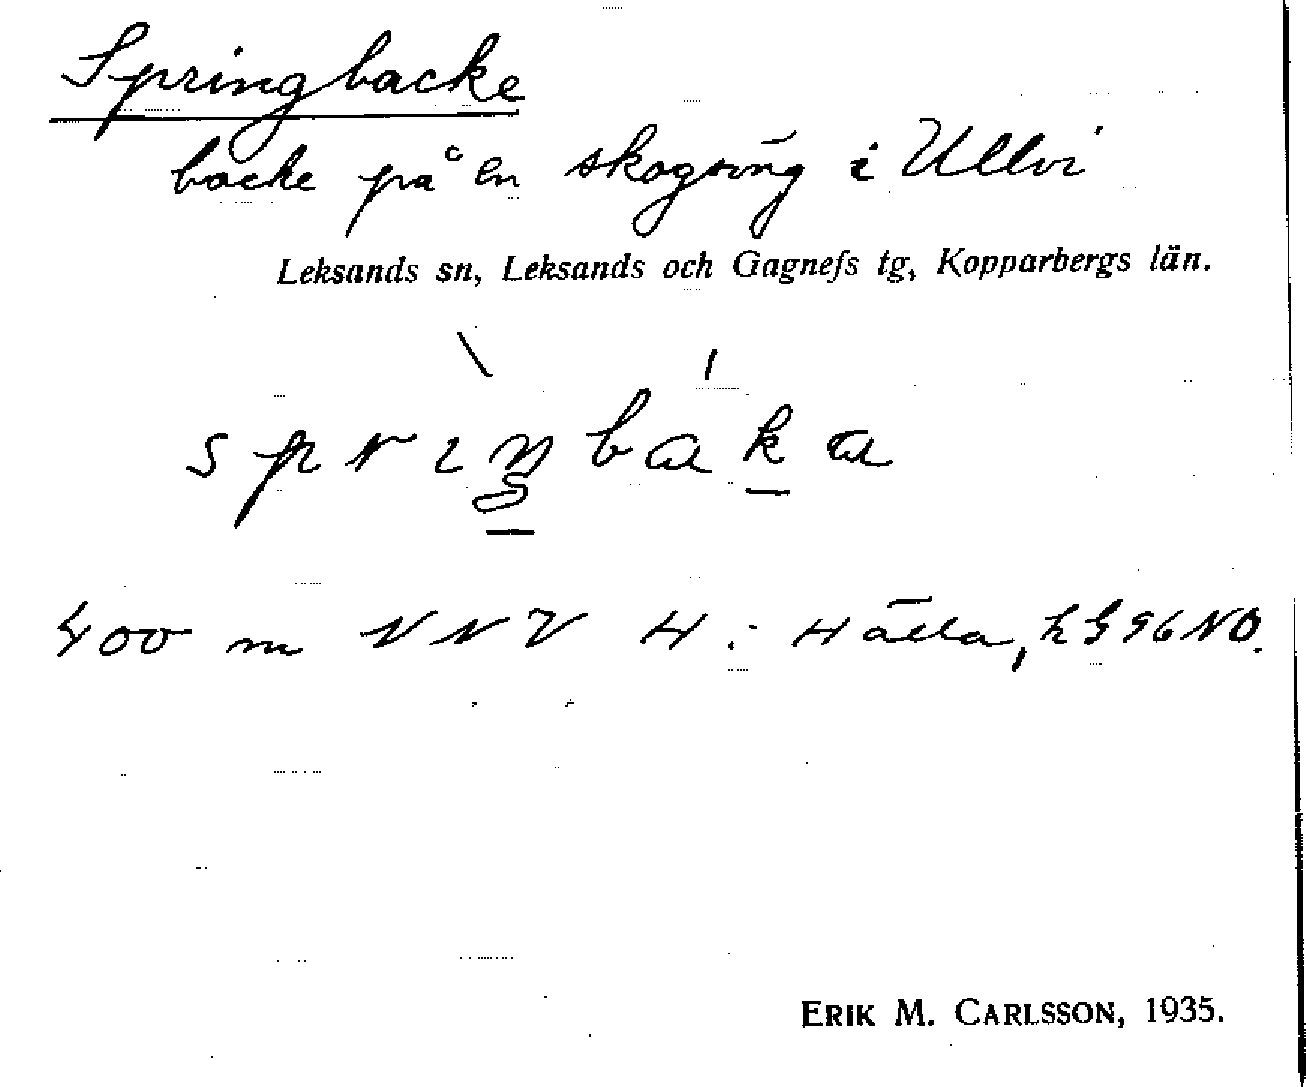 Springbacke
backe på en skogsväg i Ullvi
Leksands sn, Leksands och Gagnefs tg, Kopparbergs län.
sprıŋbaka
400 m NNV H. i Hälla, h§96NO.
ERIK M. CARLSSON, 1935.